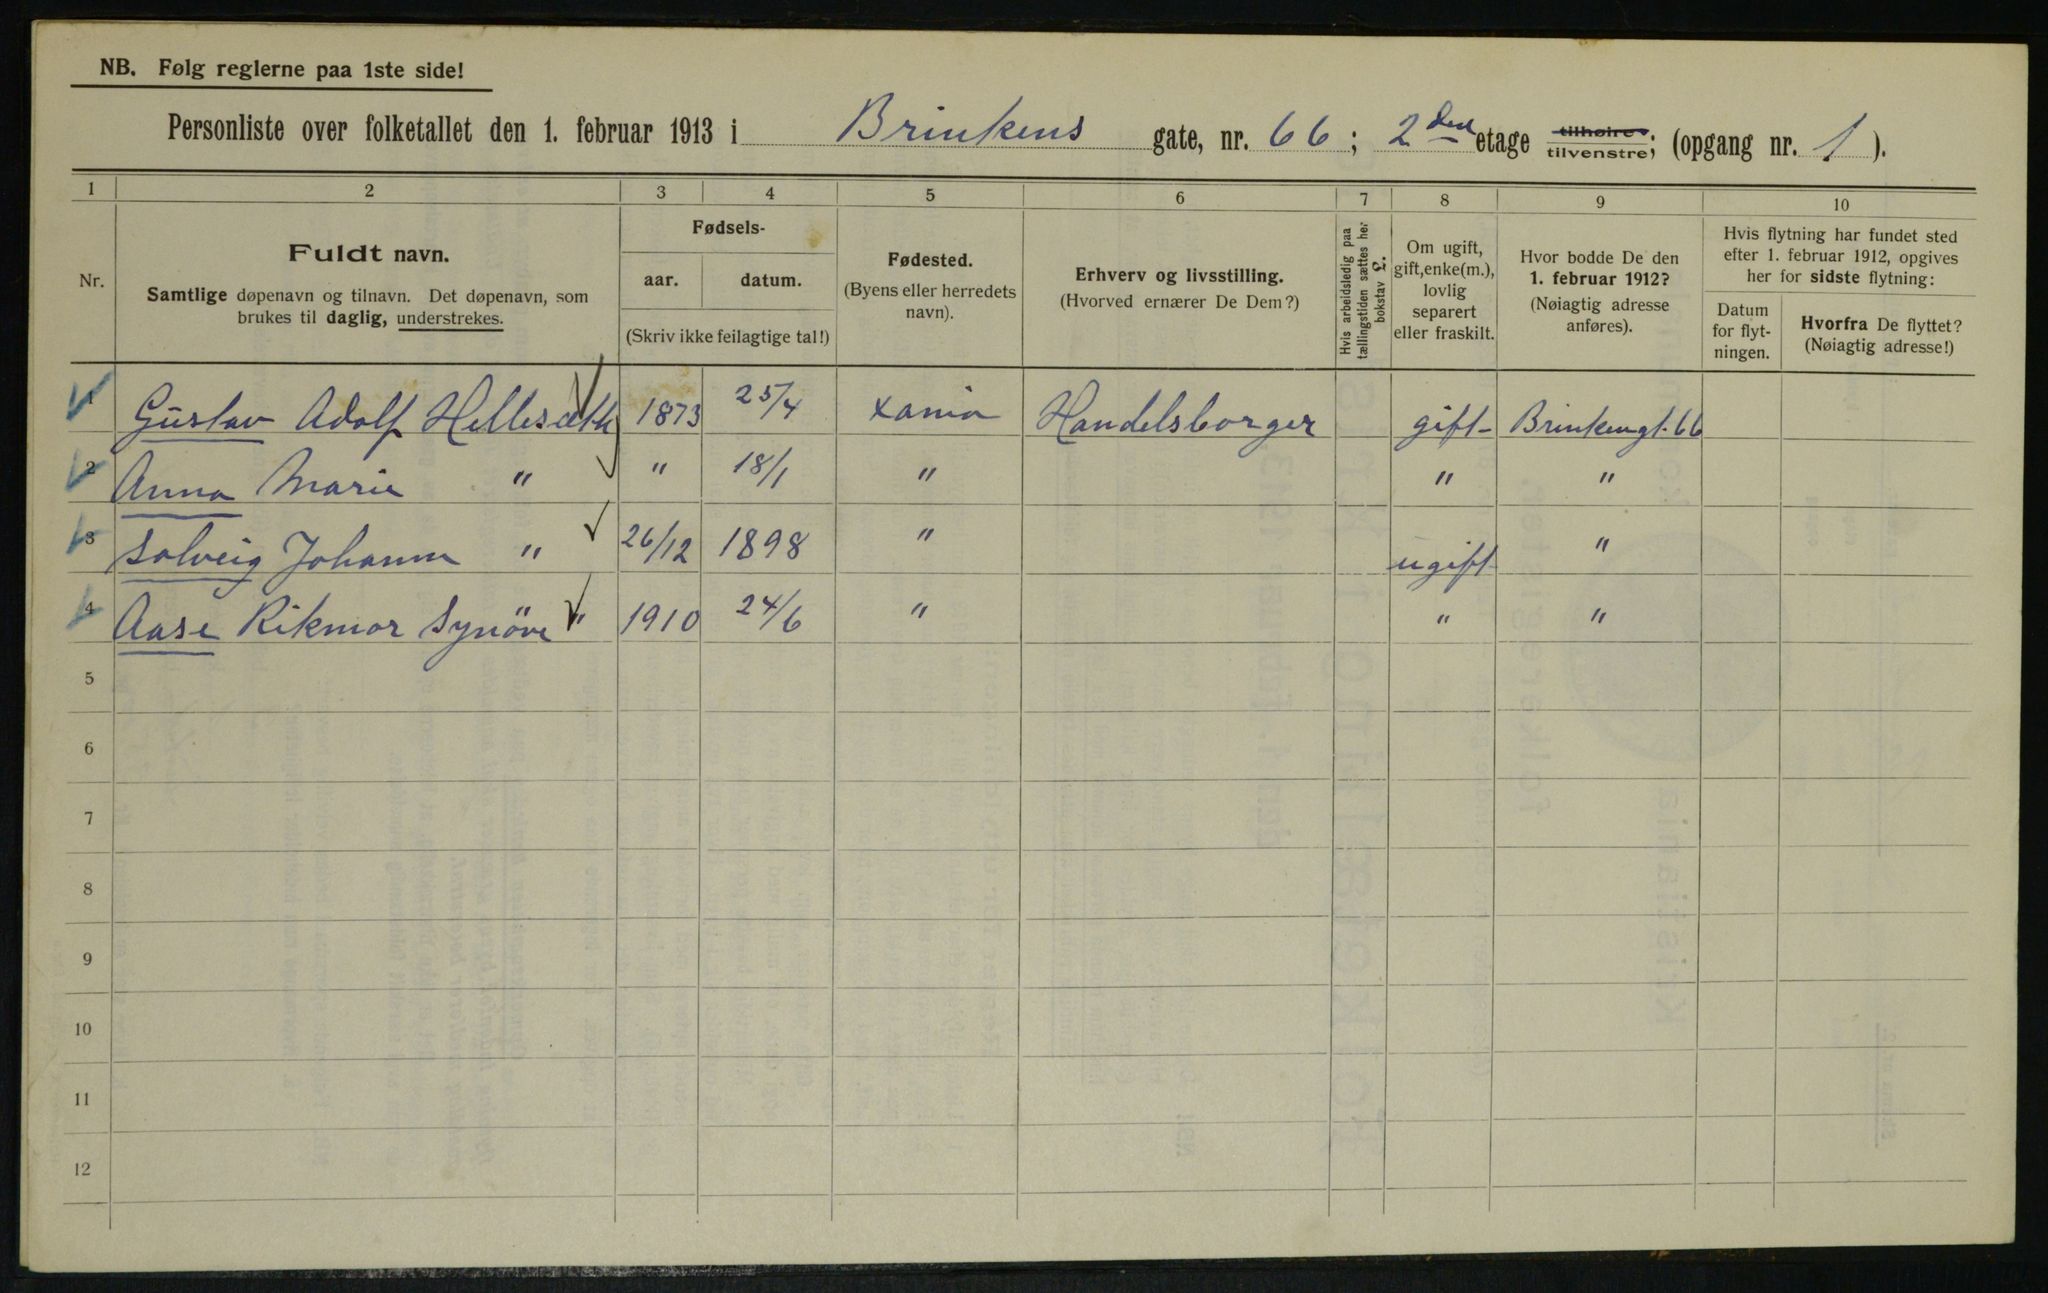 NB. Følg reglerne paa 1ste side!
Personliste over folketallet den 1. februar 1913 i Brinkens gate, nr. 66; 2den etage tilhøire tilvenstre; (opgang nr. 1).
1 2 3 4 5 6 7 8 9 10
Nr.
Fuldt navn.
Samtlige døpenavn og tilnavn. Det døpenavn, som
brukes til daglig, understrekes.
Fødsels-
aar. datum.
(Skriv ikke feilagtige tal!)
Fødested.
(Byens eller herredets
navn).
Erhverv og livsstilling.
(Hvorved ernærer De Dem?)
Hvis arbeidsledig paa
tællingstiden sættes her
bokstav L.
Om ugift,
gift, enke(m.),
lovlig
separert
eller fraskilt.
Hvor bodde De den
1. februar 1912?
(Nøiagtig adresse
anføres).
Hvis flytning har fundet sted
efter 1. februar 1912, opgives
her for sidste flytning:
Datum
for flyt-
ningen.
Hvorfra De flyttet?
(Nøiagtig adresse!)
1 Gustav Adolf Hellesæth 1873 25/4 Xania Handelsborger gift Brinkengt. 66
2 Anna Marie " " 18/1 " " "
3 Solveig Johanne " 26/12 1898 " ugift "
4 Aase Rikmor Synöve " 1910 24/6 " " "
5
6
7
8
9
10
11
12